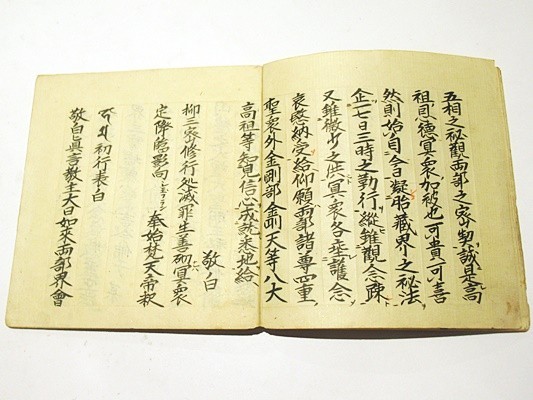 五相之秘觀兩部之密契誠是高
祖恩德冥衆加被也可貴可喜
然則始自今日凝胎藏界之秘法
企一七日三時之勤行縱雖觀念疎
又雖微少之供冥衆各垂護念
哀愍納受給仰願兩部諸尊四重
聖衆外金剛部金剛天等八大
高祖等知見信心成就給
敬白
抑三密修行処滅罪生善砌冥衆
定降臨影向奉始梵天帝釈
初行表白
敬白眞言教主大日如來兩部界會